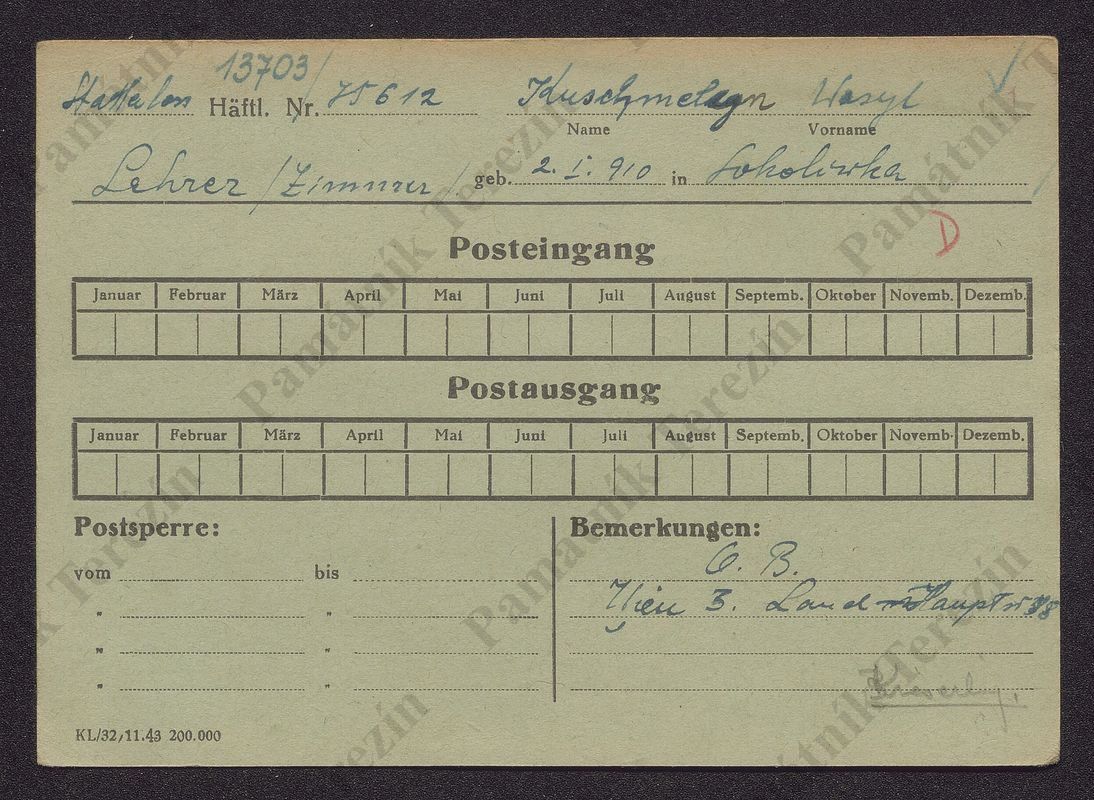 13703/
Häftl. Nr. 75612 Wasyl
Name Vorname
Lehrer / Zimmrer / geb. 2. I. 910 in Sokoliwka
D
Posteingang
Januar Februar März April Mai Juni Juli August Septemb. Oktober Novemb. Dezemb.
Postausgang
Januar Februar März April Mai Juni Juli August Septemb. Oktober Novemb. Dezemb.
Postsperre: Bemerkungen:
O. B.
vom bis
Wien 3. Land Hauptstr 88
" "
" "
" "
KL/32/11.43 200.000
Památník Terezín